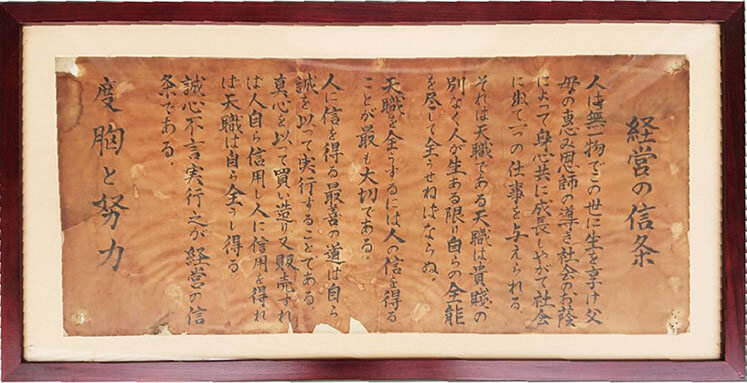 経営の信条
人は無一物でこの世に生を享け父
母の恵み恩師の導き社会のお蔭
によって身心共に成長しやがて社会
に出て一つの仕事を与えられる、
それは天職である天職は貴賤の
別なく人が生ある限り自らの全能
を尽して全うせねばならぬ。
天職を全うするには人の信を得る
ことが最も大切である。
人に信を得る最善の道は自ら
誠を以って実行することである。
真心を以って買い造り又販売すれ
ば人自ら信用し人に信用を得れ
ば天職は自ら全うし得る
誠心不言実行之が経営の信
条である。
度胸と努力